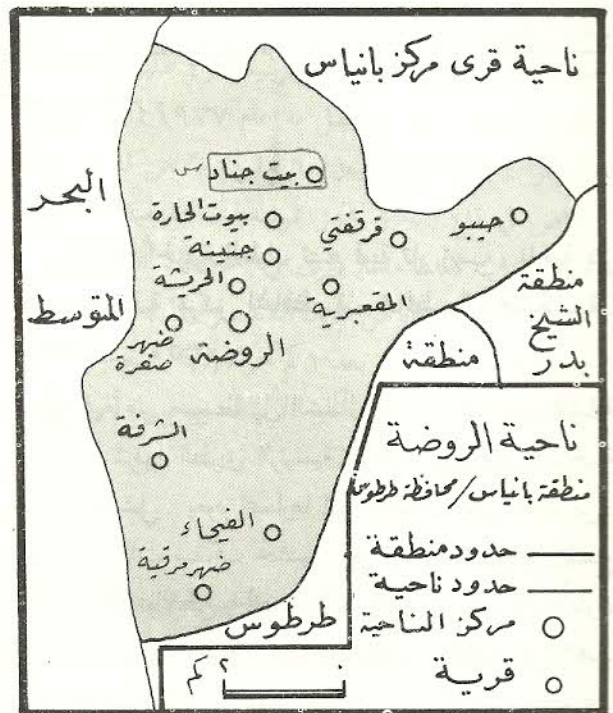 ناحية قرى مركز بانياس
البحر
المتوسط
بيت جناد
بيوت الحارة
جنينة
الحريشة
قرقفتي
حيبو
المقعبرية
الروضة
ضهر
صفرة
منطقة
الشيخ
بدر
منطقة
الشرفة
الفيحاء
ضهر مرقية
طرطوس
ناحية الروضة
منطقة بانياس/محافظة طرطوس
حدود منطقة
حدود ناحية
مركز الناحية
قرية
٠ ٢ كم